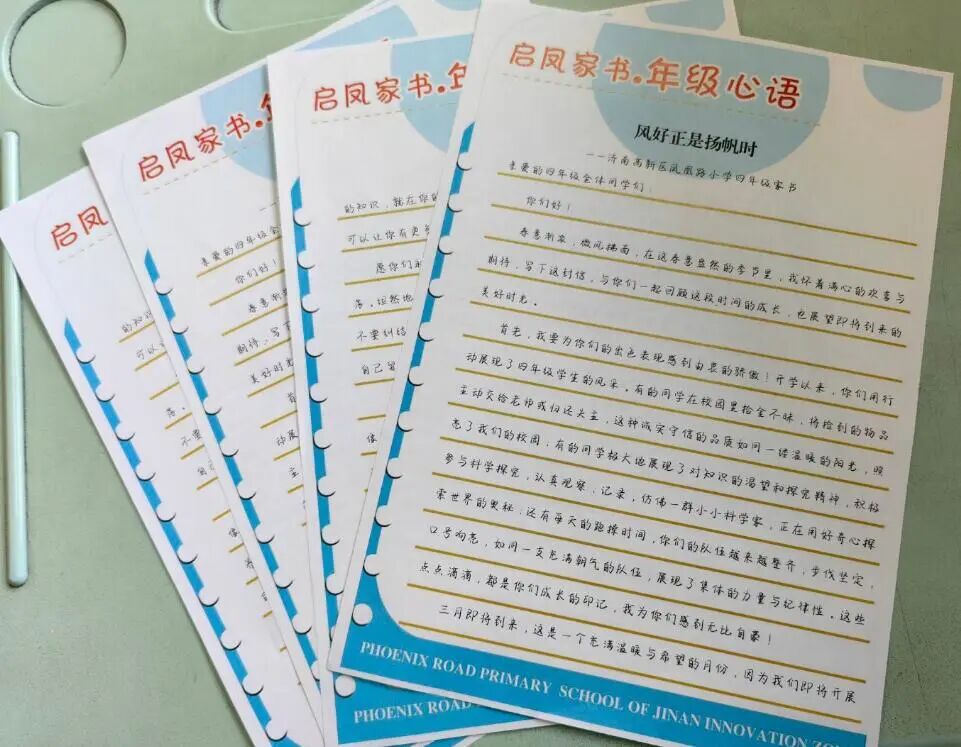 启凤家书.年级心语
风好正是扬帆时
——济南高新区凤凰路小学四年级家书
亲爱的四年级全体同学们：
你们好！
春意渐浓，微风拂面，在这春意盎然的季节里，我怀着满心的欢喜与
期待，写下这封信，与你们一起回顾这段时间的成长，也展望即将到来的
美好时光。
首先，我要为你们的出色表现感到由衷的骄傲！开学以来，你们用行
动展现了四年级学生的风采。有的同学在校园里拾金不昧，将捡到的物品
主动交给老师或归还失主，这种诚实守信的品质如同一缕温暖的阳光，照
亮了我们的校园；有的同学极大地展现了对知识的渴望和探究精神，积极
参与科学探究，认真观察、记录，仿佛一群小小科学家，正在用好奇心探
索世界的奥秘；还有每天的跑操时间，你们的队伍越来越整齐，步伐坚定，
口号响亮，如同一支充满朝气的队伍，展现了集体的力量与纪律性。这些
点点滴滴，都是你们成长的印记，我为你们感到无比自豪！
三月即将到来，这是一个充满温暖与希望的月份，因为我们即将开展
PHOENIX ROAD PRIMARY SCHOOL OF JINAN INNOVATION ZO
启凤家书.年
的知识，就在你的
可以让你有更多
愿你们
落。坦然地
不要纠结
自己留
PHOENIX ROAD
启凤家书.年
亲爱的四年级全
你们好！
春意渐
期待，写下
美好时光
首
动展
主
启凤
的知识
可以
落。
不要